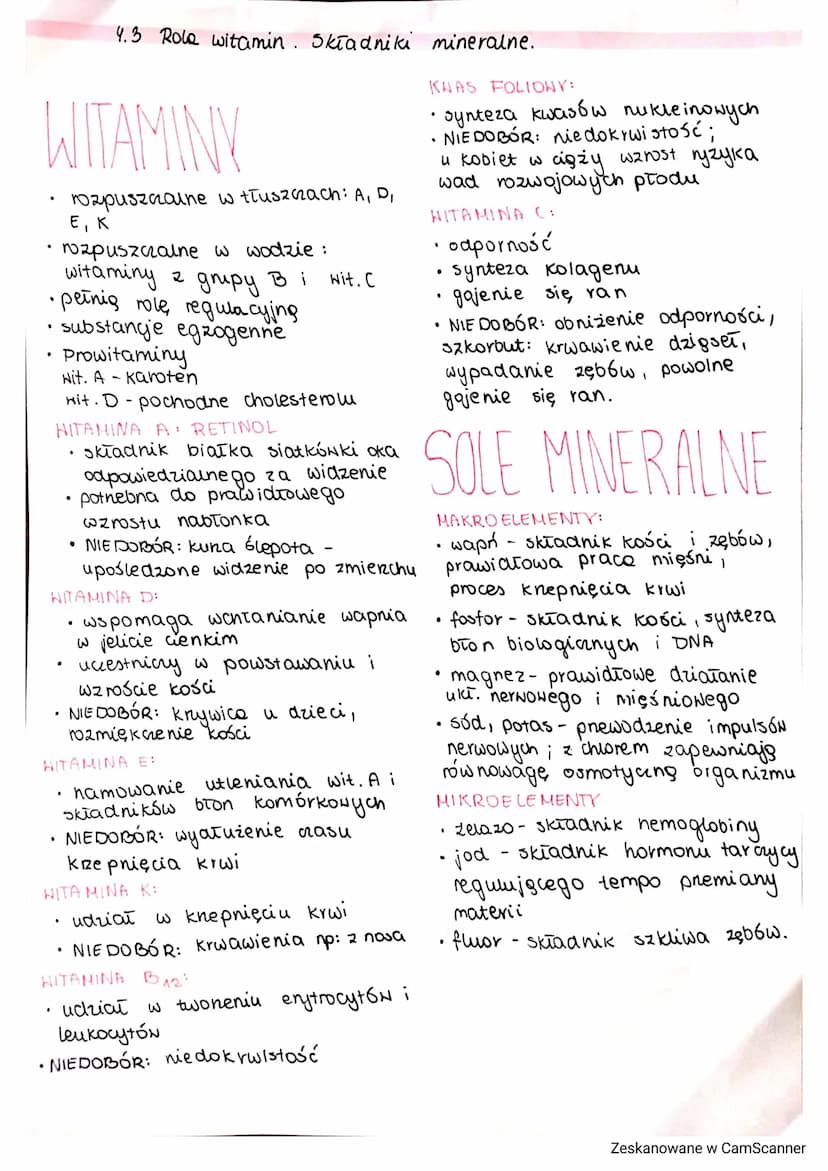 4.3 Rola witamin. Składniki mineralne.
WITAMINY
• rozpuszczalne w tłuszczach: A, D,
E, K
• rozpuszczalne w wodzie:
witaminy z grupy B i wit. C
• pełnią rolę regulacyjną
• substancje egzogenne
• Prowitaminy
wit. A - karoten
wit. D - pochodne cholesterolu
WITAMINA A: RETINOL
• składnik białka siatkówki oka
odpowiedzialnego za widzenie
• potrzebna do prawidłowego
wzrostu nabłonka
• NIEDOBÓR: kurza ślepota -
upośledzone widzenie po zmierzchu
WITAMINA D:
• wspomaga wchłanianie wapnia
w jelicie cienkim
• uczestniczy w powstawaniu i
wzroście kości
• NIEDOBÓR: krzywica u dzieci,
rozmiękczenie kości
WITAMINA E:
• hamowanie utleniania wit. A i
składników błon komórkowych
• NIEDOBÓR: wydłużenie czasu
krzepnięcia krwi
WITAMINA K:
• udział w krzepnięciu krwi
• NIEDOBÓR: krwawienia np: z nosa
WITAMINA B12:
• udział w tworzeniu erytrocytów i
leukocytów
• NIEDOBÓR: niedokrwistość
KWAS FOLIOWY:
• synteza kwasów nukleinowych
• NIEDOBÓR: niedokrwistość;
u kobiet w ciąży wzrost ryzyka
wad rozwojowych płodu
WITAMINA C:
• odporność
• synteza kolagenu
• gojenie się ran
• NIEDOBÓR: obniżenie odporności,
szkorbut: krwawienie dziąseł,
wypadanie zębów, powolne
gojenie się ran.
SOLE MINERALNE
MAKROELEMENTY:
• wapń - składnik kości i zębów,
prawidłowa praca mięśni,
proces krzepnięcia krwi
• fosfor - składnik kości, synteza
błon biologicznych i DNA
• magnez - prawidłowe działanie
ukł. nerwowego i mięśniowego
• sód, potas - przewodzenie impulsów
nerwowych; z chlorem zapewniają
równowagę osmotyczną organizmu
MIKROELEMENTY
• żelazo - składnik hemoglobiny
• jod - składnik hormonu tarczycy
regulującego tempo przemiany
materii
• fluor - składnik szkliwa zębów.
Zeskanowane w CamScanner